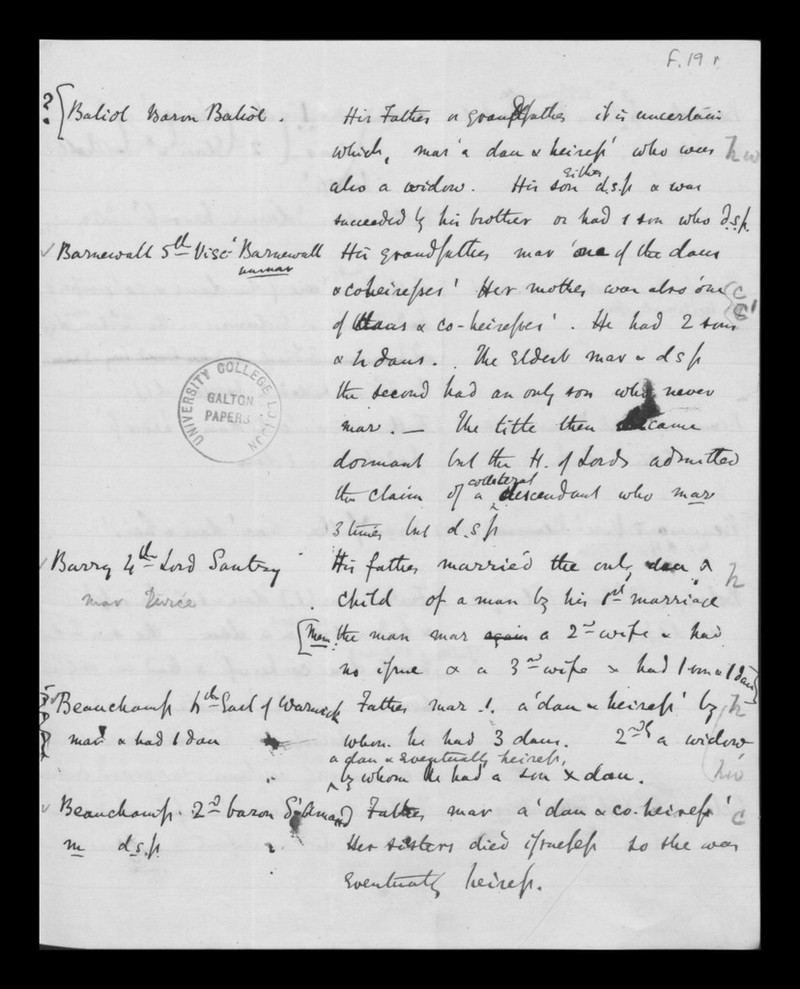 F. 19 r
? { Baliol Baron Baliol . His Father or grandfather it is uncertain
which, mar 'a dau & heiress' who was h w
also a widow. His son either d.s.p & was
succeeded by his brother or had 1 son who d.s.p.
✓ Barnewall 5th Visc^t Barnewall His grandfather mar 'one of the daus
unmar
& coheiresses' Her mother was also 'one c
of daus & co-heiresses'. He had 2 sons c'
& 4 daus. . The Eldest mar & d s p
the second had an only son who never
mar. — The title then became
dormant but the H. of Lords admitted
the claim of a collateral descendant who mar
3 times but d.s p
✓ Barry 4th Lord Santry His father married the only dau & h
mar twice child of a man by his 1st marriage
[Mem: the man mar again a 2nd wife & had
no issue & a 3rd wife & had 1 son & 1 dau]
Beauchamp 4th Earl of Warwick Father mar .1. a 'dau & heiress' by h
mar & had 1 dau whom he had 3 daus. 2ndly a widow
a dau & eventually heiress,
by whom he had a son & dau. hw
✓ Beauchamp. 2nd baron S^t Amand Father mar a 'dau & co-heiress' c
m d.s.p. Her sisters died issueless so she was
eventually heiress.
UNIVERSITY COLLEGE LONDON
GALTON
PAPERS